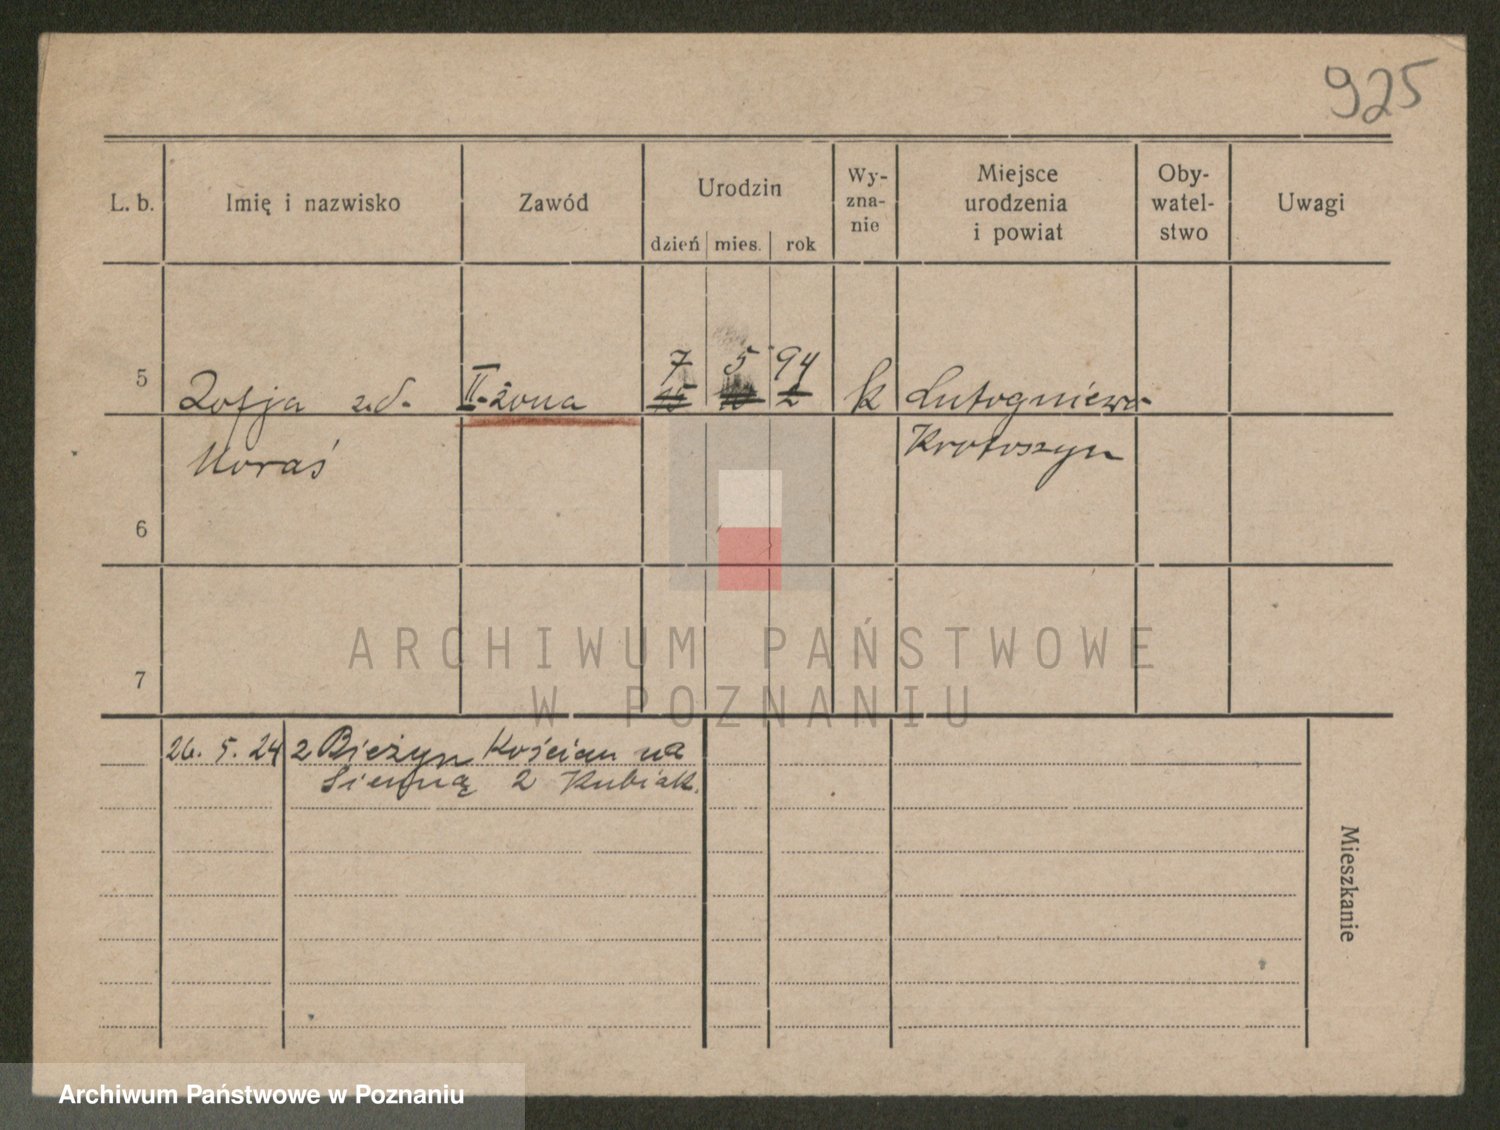 925
L. b. Imię i nazwisko Zawód Urodzin Wy-zna-nie Miejsce urodzenia i powiat Oby-watel-stwo Uwagi
dzień mies. rok
7 5 94
5 Zofja z d. II-żona k Lutogniewo
Moraś Krotoszyn
6
7
ARCHIWUM PAŃSTWOWE
W POZNANIU
26. 5. 24 z Bieżyn Kościan na
Sienną 2 Kubiak.
Mieszkanie
Archiwum Państwowe w Poznaniu